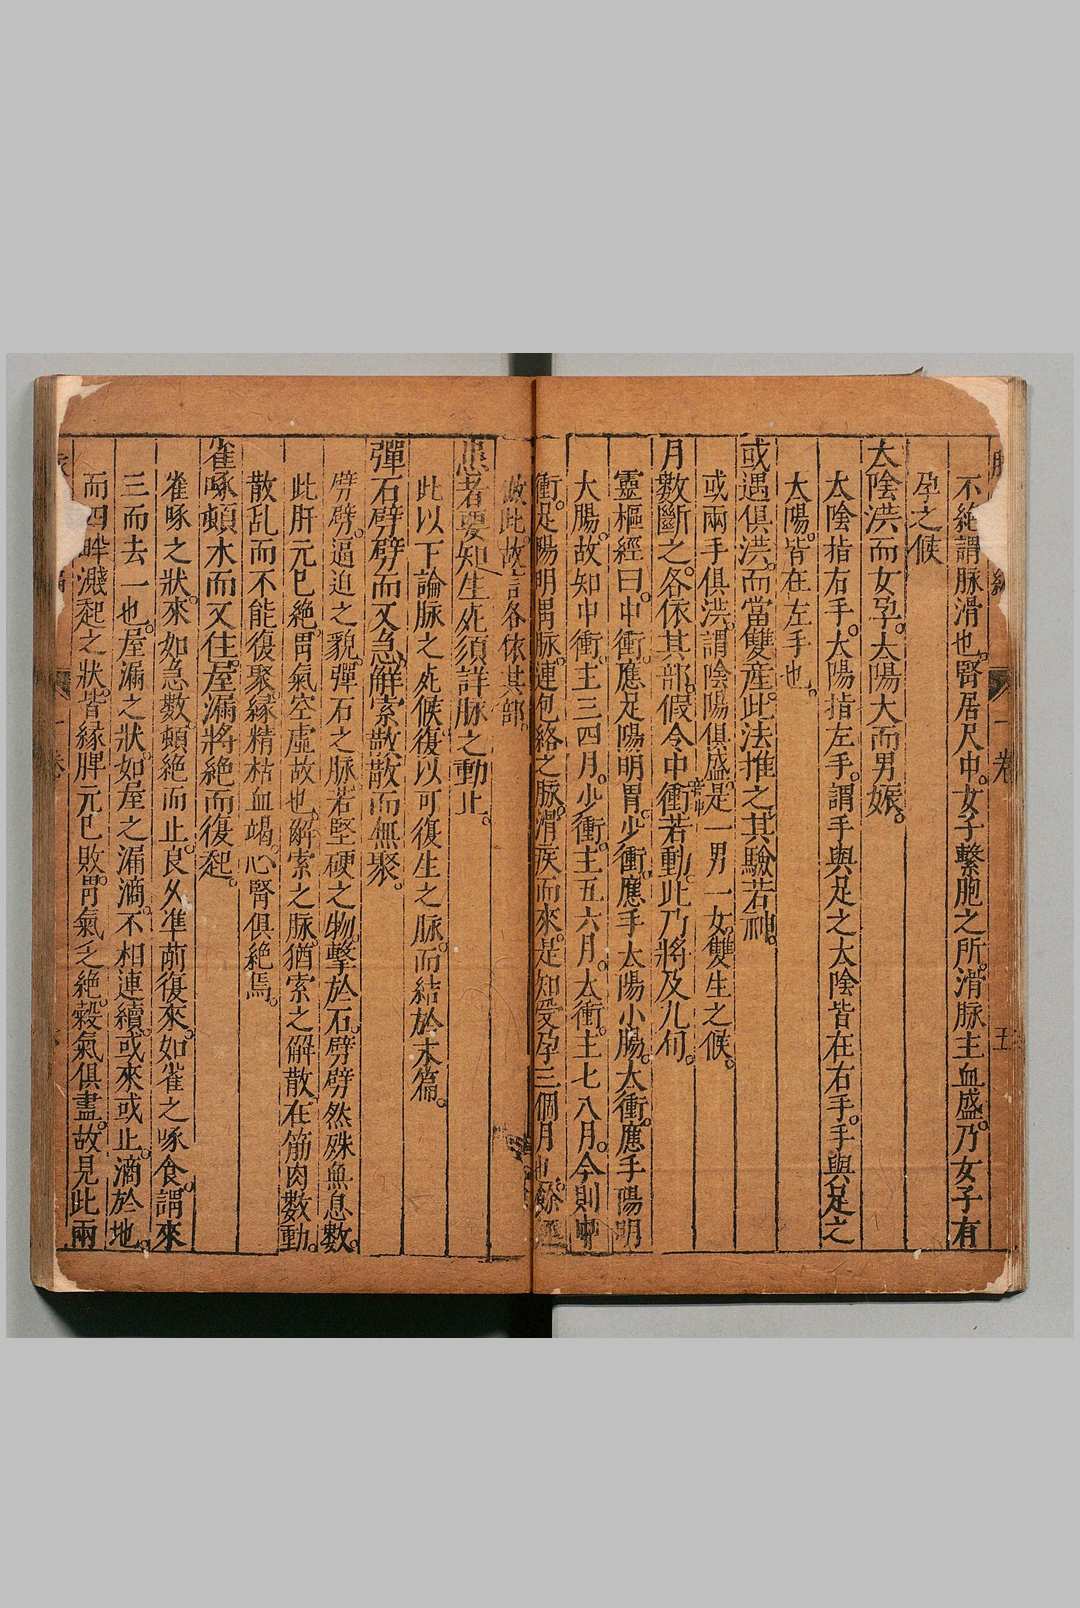 不絶謂脉滑也。腎居尺中。女子繫胞之所。滑脉主血盛。乃女子有
孕之候
太陰洪而女孕。太陽大而男娠。
太陰指右手。太陽指左手。謂手與足之太陰皆在右手。手與足之
太陽。皆在左手也。
或遇俱洪。而當雙産。此法推之。其驗若神。
或兩手俱洪。謂陰陽俱盛。是一男一女。雙生之候。
月數斷之。各依其部。假令中衝若動。此乃將及九旬。
靈樞經曰。中衝應足陽明胃。少衝應手太陽小腸。太衝應手陽明
大腸。故知中衝主三四月。少衝主五六月。太衝主七八月。今則中
衝。足陽明胃脉。連包絡之脉。滑疾而來。是知受孕三個月也。餘
倣此。故言各依其部。
患者要知生死。須詳脉之動止。
此以下論脉之死候。復以可復生之脉。而結於末篇。
彈石劈劈而又急。解索散散而無聚。
劈劈。逼迫之貌。彈石之脉。若堅硬之物。擊於石。劈劈然殊無息數。
此肝元巳絶。胃氣空虛故也。解索之脉。猶索之解散。在筋肉數動。
散乱而不能復聚。縁精枯血竭。心腎俱絶焉。
雀啄頓木而又住。屋漏將絶而復起。
雀啄之狀。來如急數。頓絶而止。良久准前復來。如雀之啄食。謂來
三而去一也。屋漏之狀。如屋之漏滴。不相連續。或來或止。滴於地。
而四畔濺起之狀。皆縁脾元巳敗。胃氣乏絶。穀氣俱盡。故見此兩